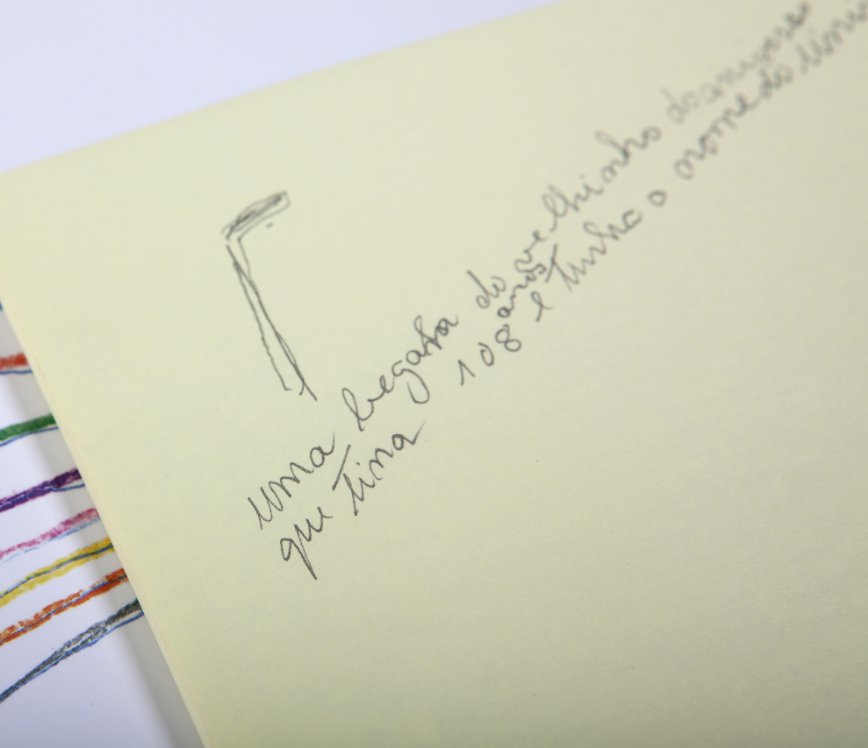 uma begala do velhinho do univers
que tina 108 anos e tinha o nome do Uni